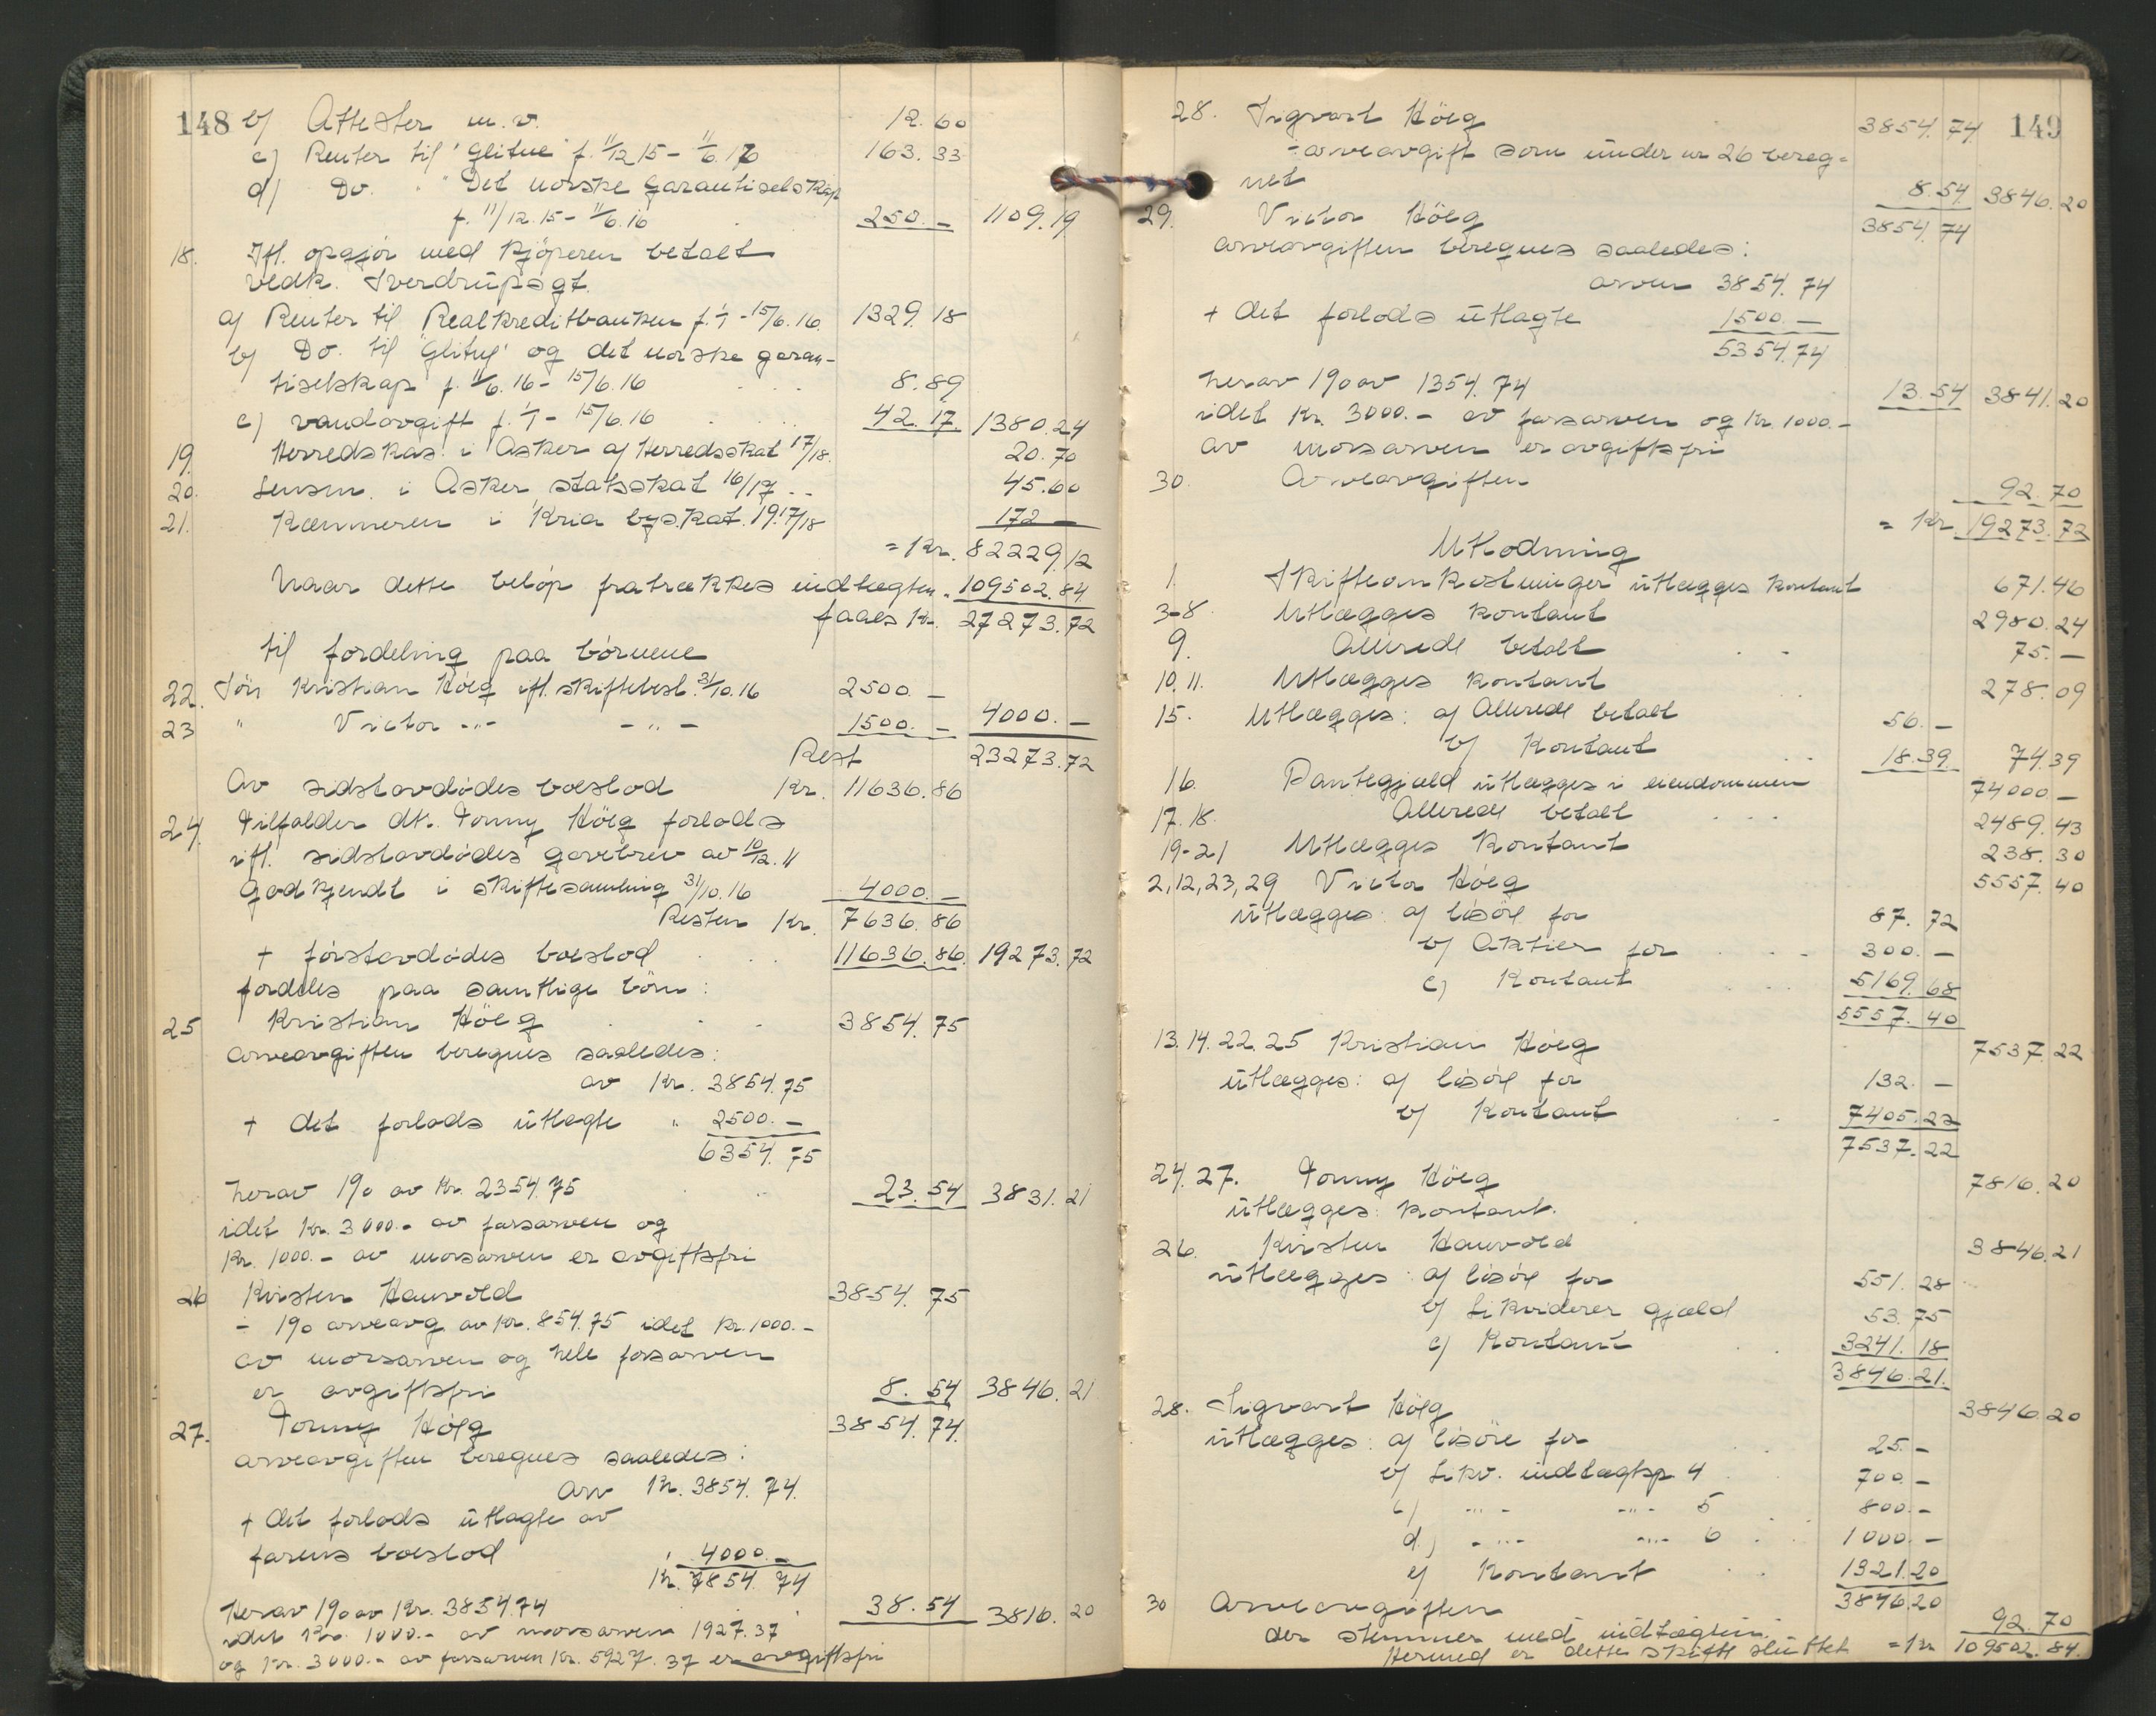 148 b) Attester m. v. 12.60
c) Renter til "Glitne" f. 11/12 15 - 11/6. 16 163.33
d) Do. " Det norske Garantiselskap
f. 11/12. 15 - 11/6. 16 250.- 1109.19
18. Ifl. opgjör med kjöperen betalt
vedk. Sverdrupsgt.
a) Renter til Realkreditbanken f. 1/1 - 15/6. 16. 1329.18
b) Do. til "Glitne" og det norske garan-
tiselskap f. 11/6. 16 - 15/6. 16 8.89
c) vandavgift f. 1/1 - 15/6. 16 42.17. 1380.24
19. Herredskas. i Asker af Herredsskat 17/18. 20.70
20. Lensm. i Asker statsskat 16/17 .. 45.60
21. Kæmneren i Kria byskat. 1917/18 172 -
= Kr. 82229.12
Naar dette belöp fratrækkes indtægten " 109502.84
faaes Kr. 27273.72
til fordeling paa börnene
22. Sön Kristian Höeg ifl. skiftebesl. 31/10. 16 2500.-
23 " Victor -"- -"- 1500.- 4000.-
Rest 23273.72
Av sidstavdödes boeslod Kr. 11636.86
24. Tilfalder dtr. Tonny Höeg forlods
ifl. sidstavdödes gavebrev av 10/12. 11
godkjendt i skiftesamling 31/10. 16 4000.-
Resten Kr. 7636.86
+ förstavdödes boeslod 11636.86. 19273.72
fordeles paa samtlige börn:
25 Kristian Höeg 3854.75
arveavgiften beregnes saaledes:
av Kr. 3854.75
+ det forlods utlagte " 2500.-
6354.75
herav 1% av Kr. 2354.75 23.54 3831.21
idet Kr. 3000.- av farsarven og
Kr. 1000.- av morsarven er avgiftsfri
26 Kirsten Hauvold 3854.75
- 1% arveavg. av Kr. 854.75 idet Kr. 1000.-
av morsarven og hele farsarven
er avgiftsfri 8.54 3846.21
27. Tonny Höeg 3854.74.
arveavgiften beregnes saaledes:
Arv Kr. 3854.74.
+ det forlods utlagte av
farens boeslod " 4000.-
Kr. 7854.74
Herav 1% av Kr. 3854.74 38.54 3816.20
idet Kr. 1000.- av morsarven 1927.37
og Kr. 3000.- av farsarven Kr. 5927.37 er avgiftsfri
28. Sigvart Höeg 3854.74 149
- arveavgift som under nr 26 bereg-
net 8.54 3846.20
29. Victor Höeg 3854.74
arveavgiften beregnes saaledes:
arven 3854.74
+ det forlods utlagte 1500.-
5354.74
herav 1% av 1354.74 13.54 3841.20
idet Kr. 3000.- av farsarven og Kr. 1000.-
av morsarven er avgiftsfri
30 Arveavgiften 92.70
= Kr 19273.72
Utlodning
1. Skifteomkostninger utlægges kontant 671.46
3-8. Utlægges kontant 2980.24
9. Allerede betalt 75.-
10. 11. Utlægges kontant 278.09
15. Utlægges: a) Allerede betalt 56.-
b) Kontant 18.39 74.39
16. Pantegjæld utlægges i eiendommen 74000 -
17. 18. Allerede betalt 2489.43
19-21 Utlægges kontant 238.30
2, 12, 23, 29 Victor Höeg 5557.40
utlægges: a) lösöre for 87.72
b) Aktier for 300.-
c) Kontant 5169.68
5557.40
13. 14. 22. 25 Kristian Höeg 7537.22
utlægges: a) lösöre for 132.-
b) Kontant 7405.22
7537.22
24. 27. Tonny Höeg 7816.20
utlægges: kontant.
26. Kirsten Hauvold 3846.21
utlægges: a) lösöre for 551.28
b) Likviderer gjæld 53.75
c) Kontant 3241.18
3846.21.
28. Sigvart Höeg 3846.20
utlægges: a) lösöre for 25.-
b) Likv. indtægtsp. 4 700.-
c) -"- -"- 5 800.-
d) -"- -"- 6 1000.-
e) Kontant 1321.20
3846.20
30 Arveavgiften 92.70
der stemmer med indtægten. = Kr 109502.84.
Hermed er dette skifte sluttet